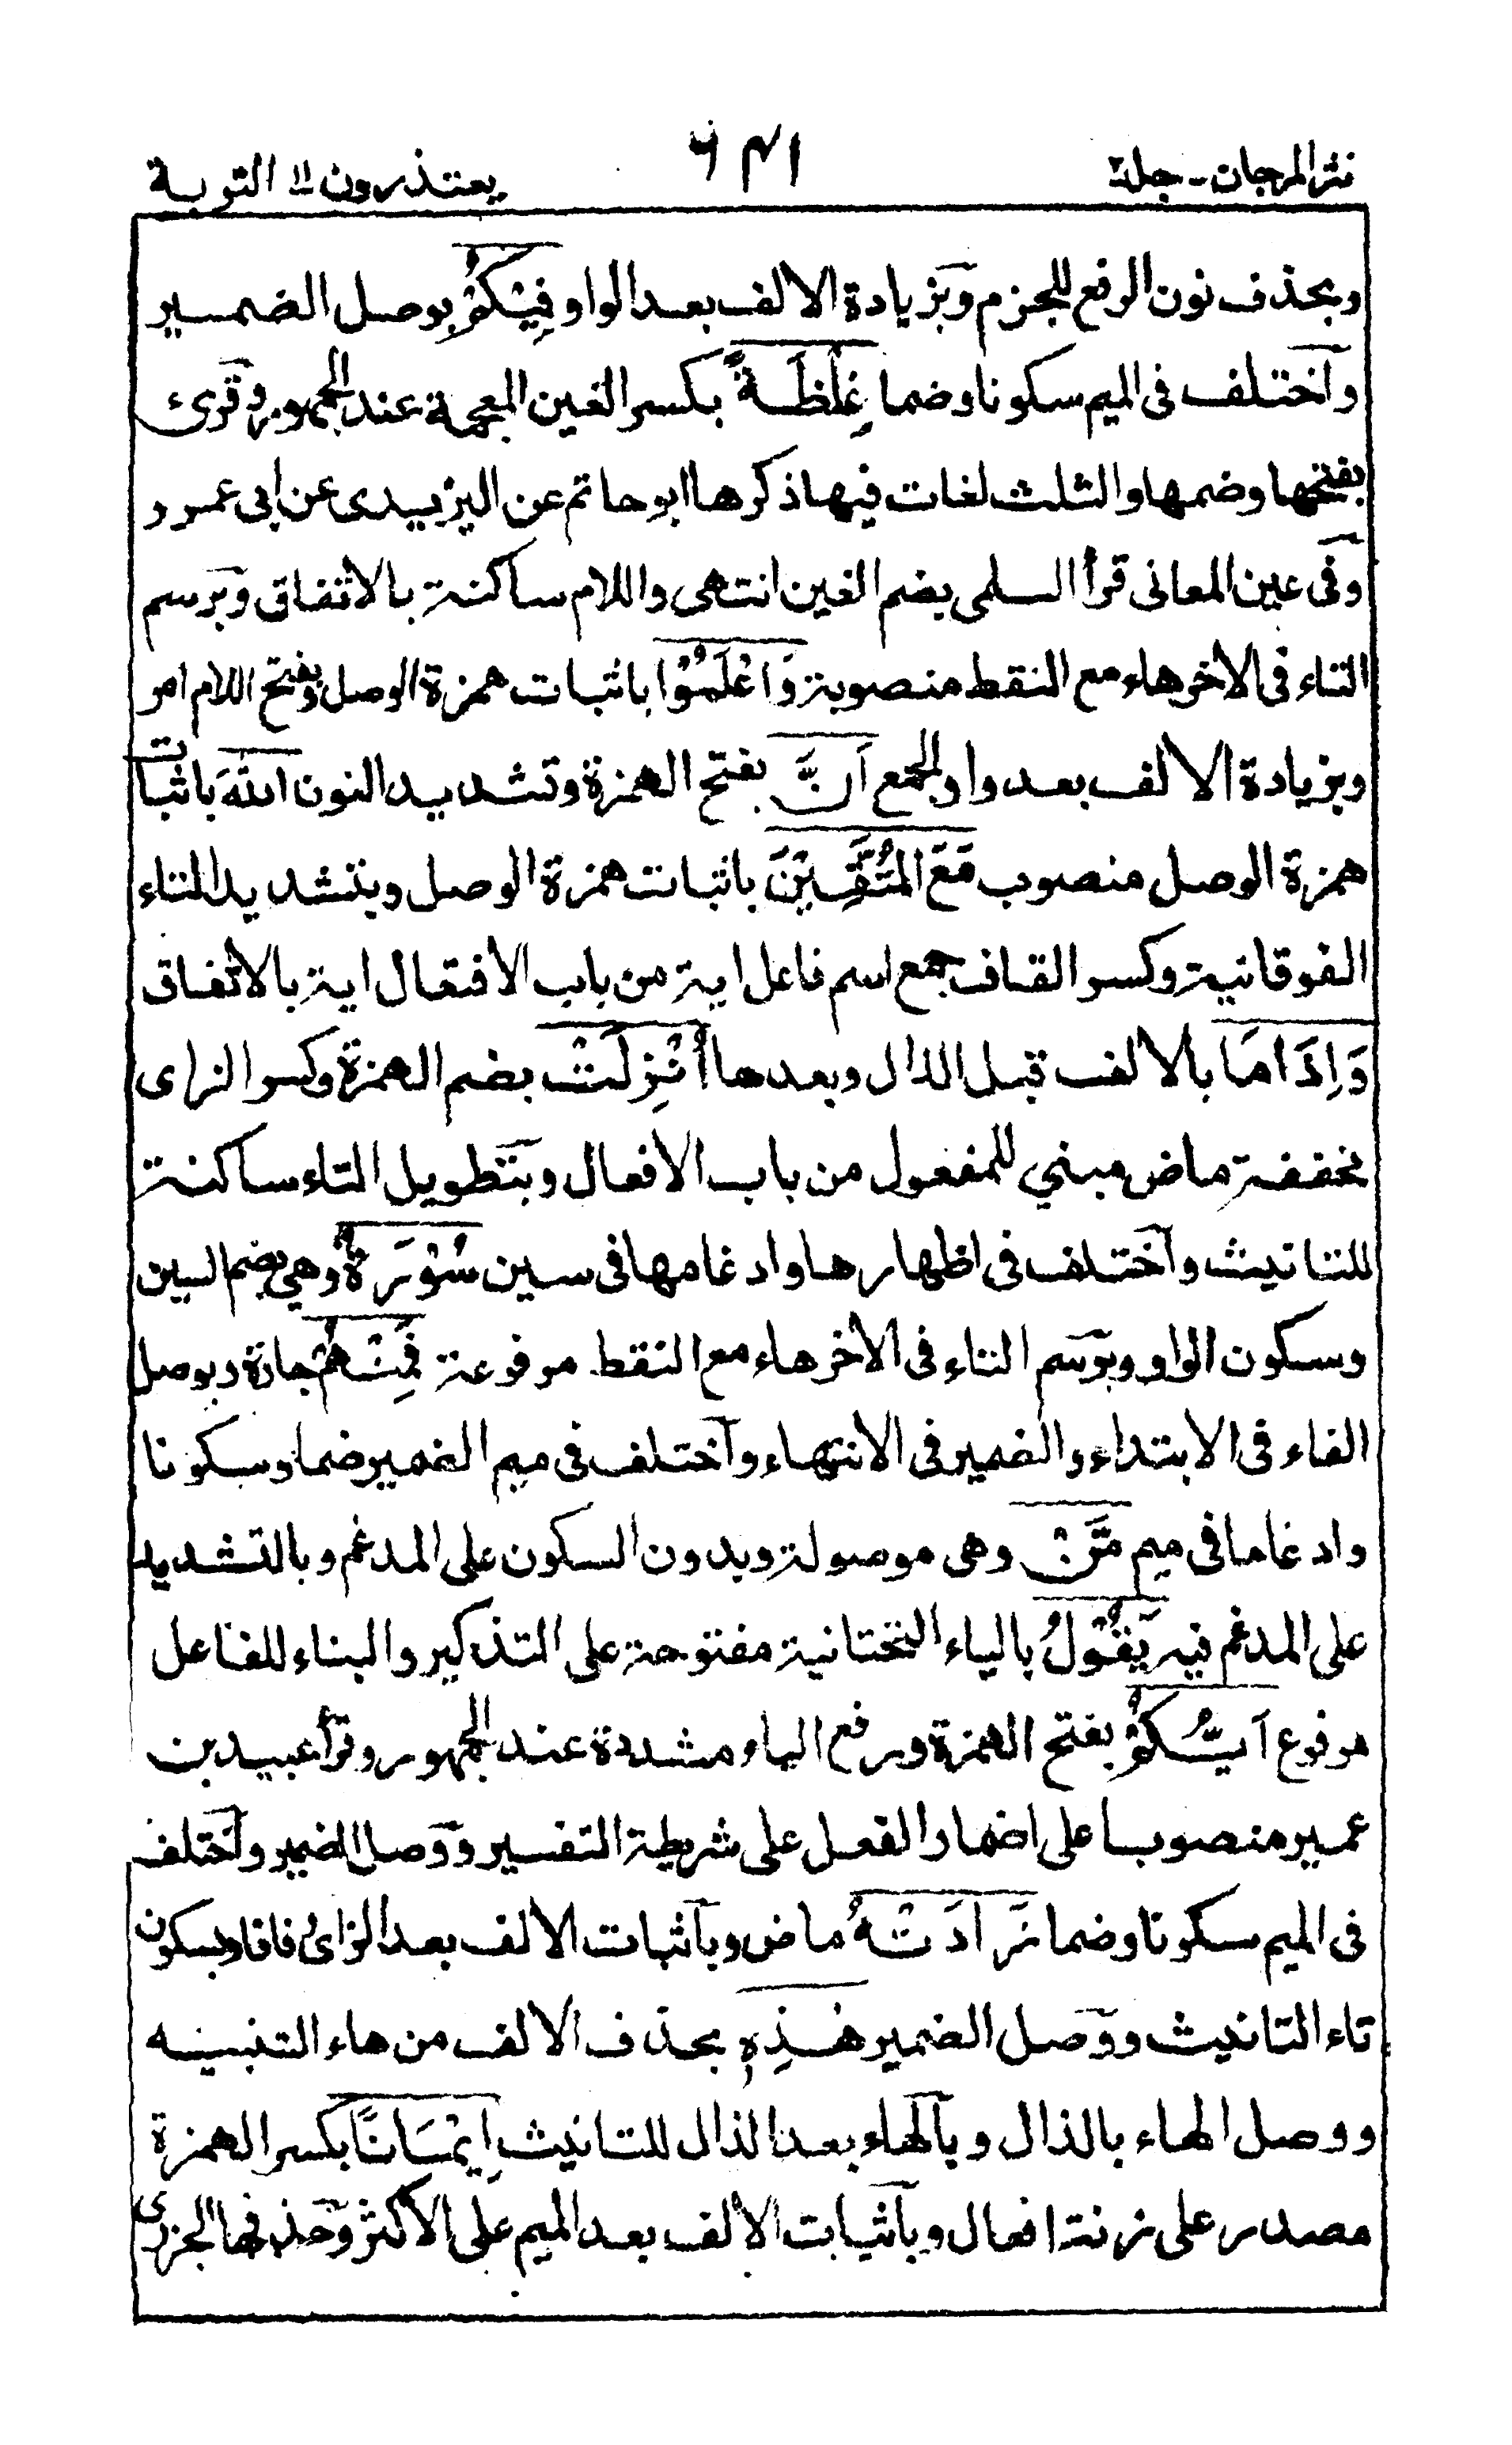 نثر المرجان - جلد ٢
٦٤١
يعتذرون ١١ التوبة
وبحذف نون الرفع للجزم وبزيادة الالف بعد الواو فِيْكُمْ بوصل الضمير
واختلف فى الميم سكونا وضما غِلْظَةً بكسر الغين المعجمة عند الجمهور وقرئ
بفتحها وضمها والثلث لغات فيها ذكرها ابو حاتم عن اليزيدى عن ابى عمرو
وفى عين المعانى قرأ السلمى بضم الغين انتهى واللام ساكنة بالاتفاق وبرسم
التاء فى الاخر هاء مع النقط منصوبة وَاعْلَمُوْا باثبات همزة الوصل وبفتح اللام امر
وبزيادة الالف بعد واو الجمع اَنَّ بفتح الهمزة وتشديد النون اللهَ باثبات
همزة الوصل منصوب مَعَ الْمُتَّقِيْنَ باثبات همزة الوصل وبتشديد التاء
الفوقانية وكسر القاف جمع اسم فاعل اية من باب الافتعال اية بالاتفاق
وَاِذَا مَا بالالف قبل الذال وبعدها اُنْزِلَتْ بضم الهمزة وكسر الزاى
مخففة ماض مبني للمفعول من باب الافعال وبتطويل التاء ساكنة
للتانيث واختلف فى اظهارها وادغامها فى سين سُوْرَةٌ وهي بضم السين
وسكون الواو وبرسم التاء فى الاخر هاء مع النقط مرفوعة فَمِنْهُمْ جارة وبوصل
الفاء فى الابتداء والضمير فى الانتهاء واختلف فى ميم الضمير ضما وسكونا
وادغاما فى ميم مَّنْ وهى موصولة وبدون السكون على المدغم وبالتشديد
على المدغم فيه يَقُوْلُ بالياء التحتانية مفتوحة على التذكير والبناء للفاعل
مرفوع اَيُّكُمْ بفتح الهمزة ورفع الياء مشددة عند الجمهور وقرأ عبيد بن
عمير منصوبا على اضمار الفعل على شريطة التفسير ووصل الضمير واختلف
فى الميم سكونا وضما زَادَتْهُ ماض وباثبات الالف بعد الزاى وفاقا وبسكون
تاء التانيث ووصل الضمير هٰذِهٖ بحذف الالف من هاء التنبيه
ووصل الهاء بالذال وبالهاء بعد الذال للتانيث اِيْمَانًا بكسر الهمزة
مصدر على زنة افعال وباثبات الالف بعد الميم على الاكثر وحذفها الجزرى